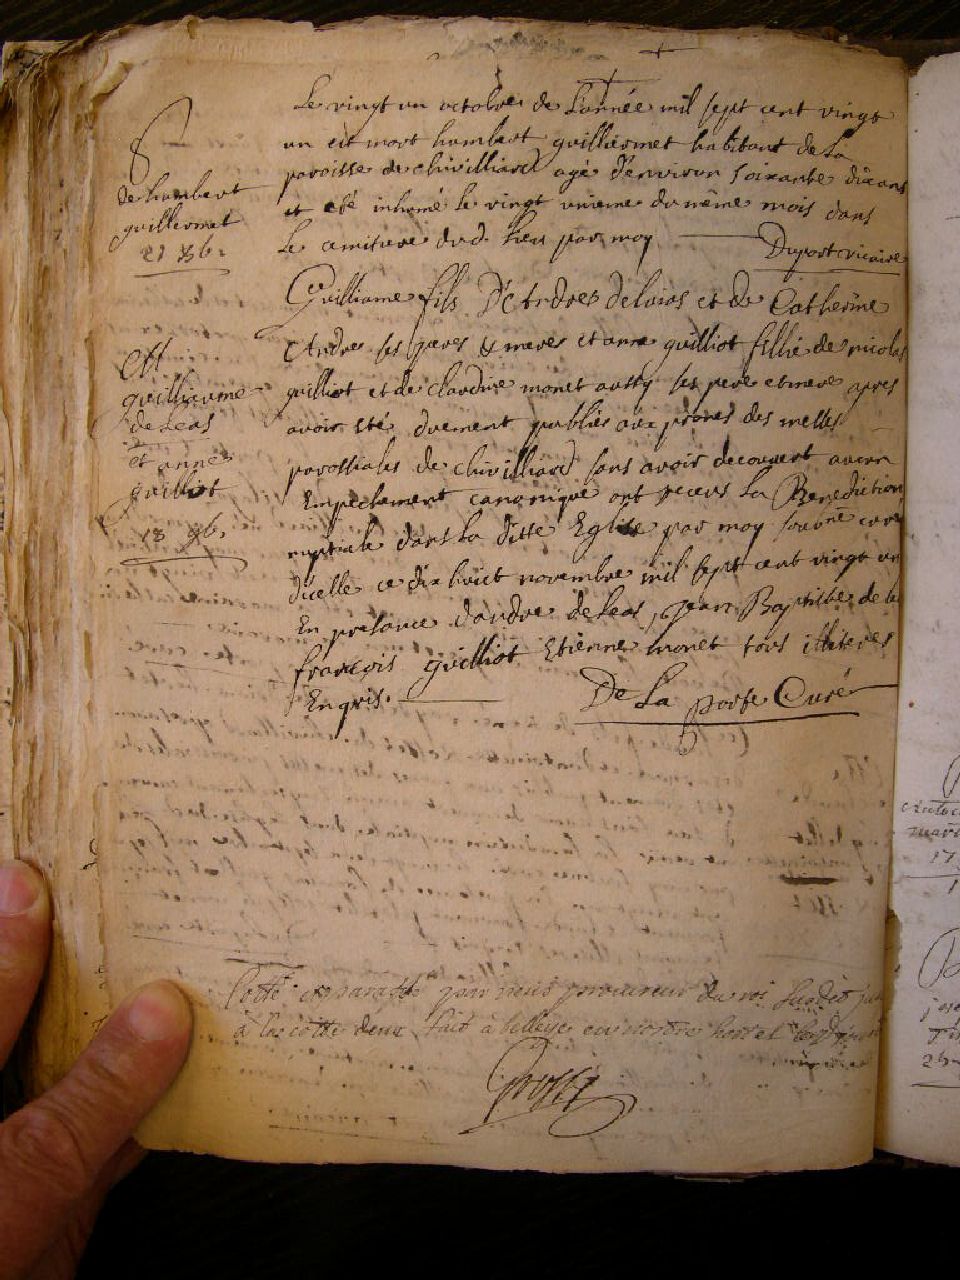 Le vingt un octobre de Lannée mil sept cent vingt
un est mort humbert guilliermet habitant de La
paroisse de chivilliard agé d'environ soixante dix ans
et eté inhumé le vingt unieme du même mois dans
Le cimitiere dud. Lieu par moy Dupont vicaire
de humbert
guilliermet
Guilliame fils D'Andres delaias et de Catherine
Andre ses peres & meres et anne guilliot fillie de nicolas
guilliot et de claudine monet aussy ses pere et mere apres
avoir eté duement publiés aux prones des messes
parossiales de chivilliard sans avoir decouvert aucun
Empechement canonique ont receus La Benediction
nuptiale dans La ditte Eglise par moy curé
dicelle ce dix huict novembre mil sept cent vingt un
En presance dandre deLeas, jean Baptiste de
françois guilliot Etienne monet tous illiteres
Enquis. De La porte Curé
guilliaume
deLeas
et anne
guilliot
18 9b.
Cotté et paraffé par nous procureur du roi
à la cotte deux, fait à belley
Grossy